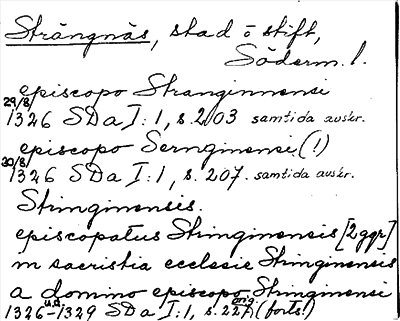 Strängnäs, stad o stift,
Söderm. l.
episcopo Stranginnensi
29/8 1326 SDa I:1, s. 203 samtida avskr.
episcopo Sernginensi (!)
30/8 1326 SDa I:1, s. 207. samtida avskr.
Stringinensis.
episcopatus Stringinensis [2ggr]
in sacristia ecclesie Stringinensis
a domino episcopo Stringinensi
1326-u.å.-1329 SDa I:1, s. 227 orig. (forts!)